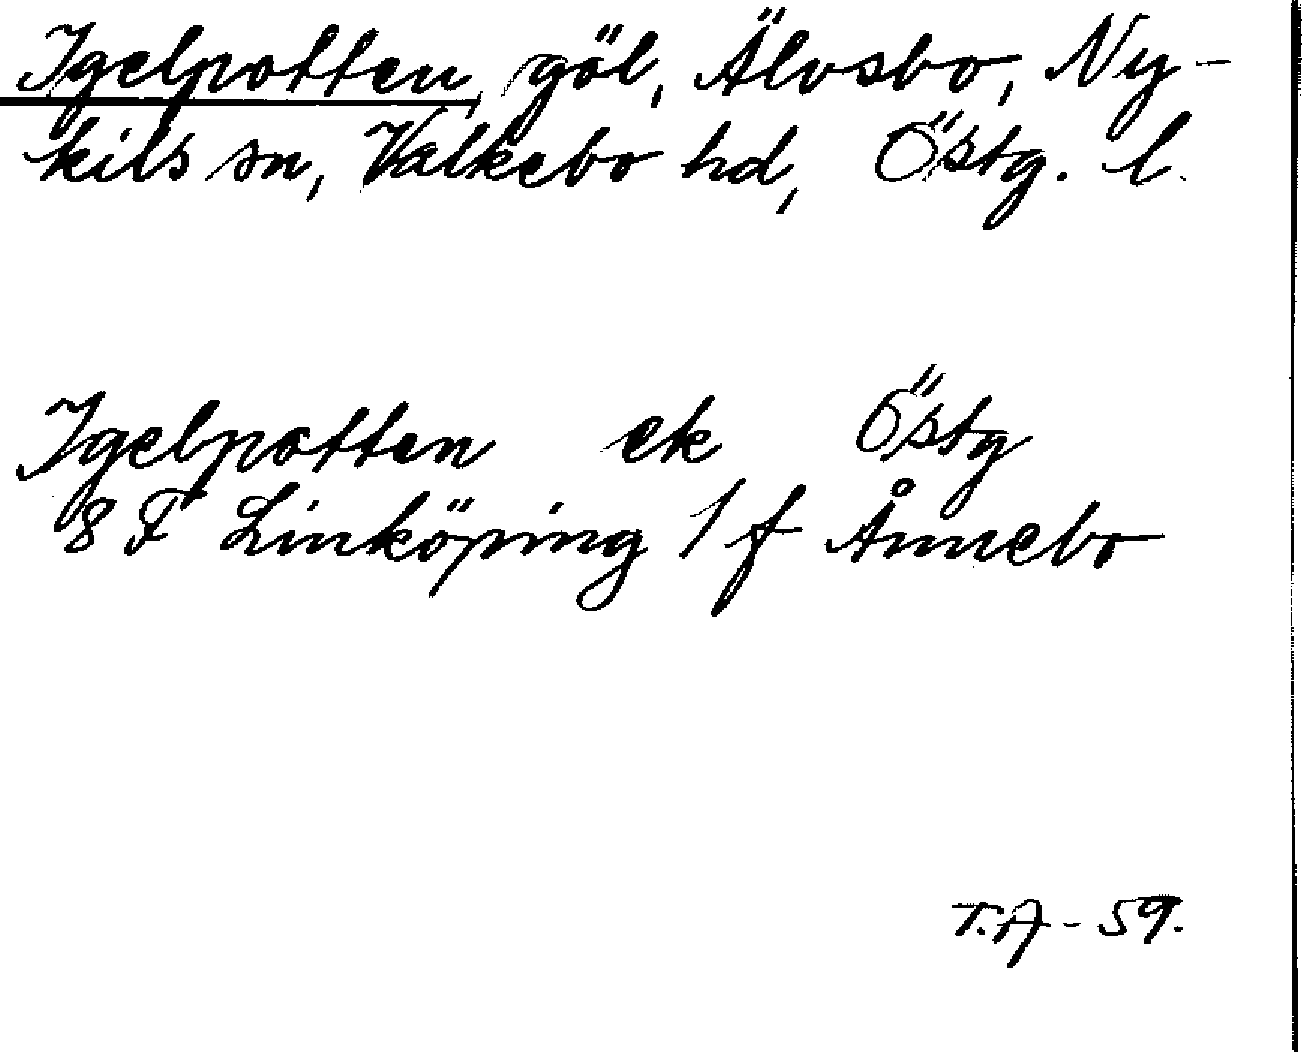 Igelpotten, göl, Älvsbo, Ny-
kils sn, Valkebo hd, Östg. l.
Igelpotten ek Östg
8 F Linköping 1 f Ånnebo
T.A - 59.